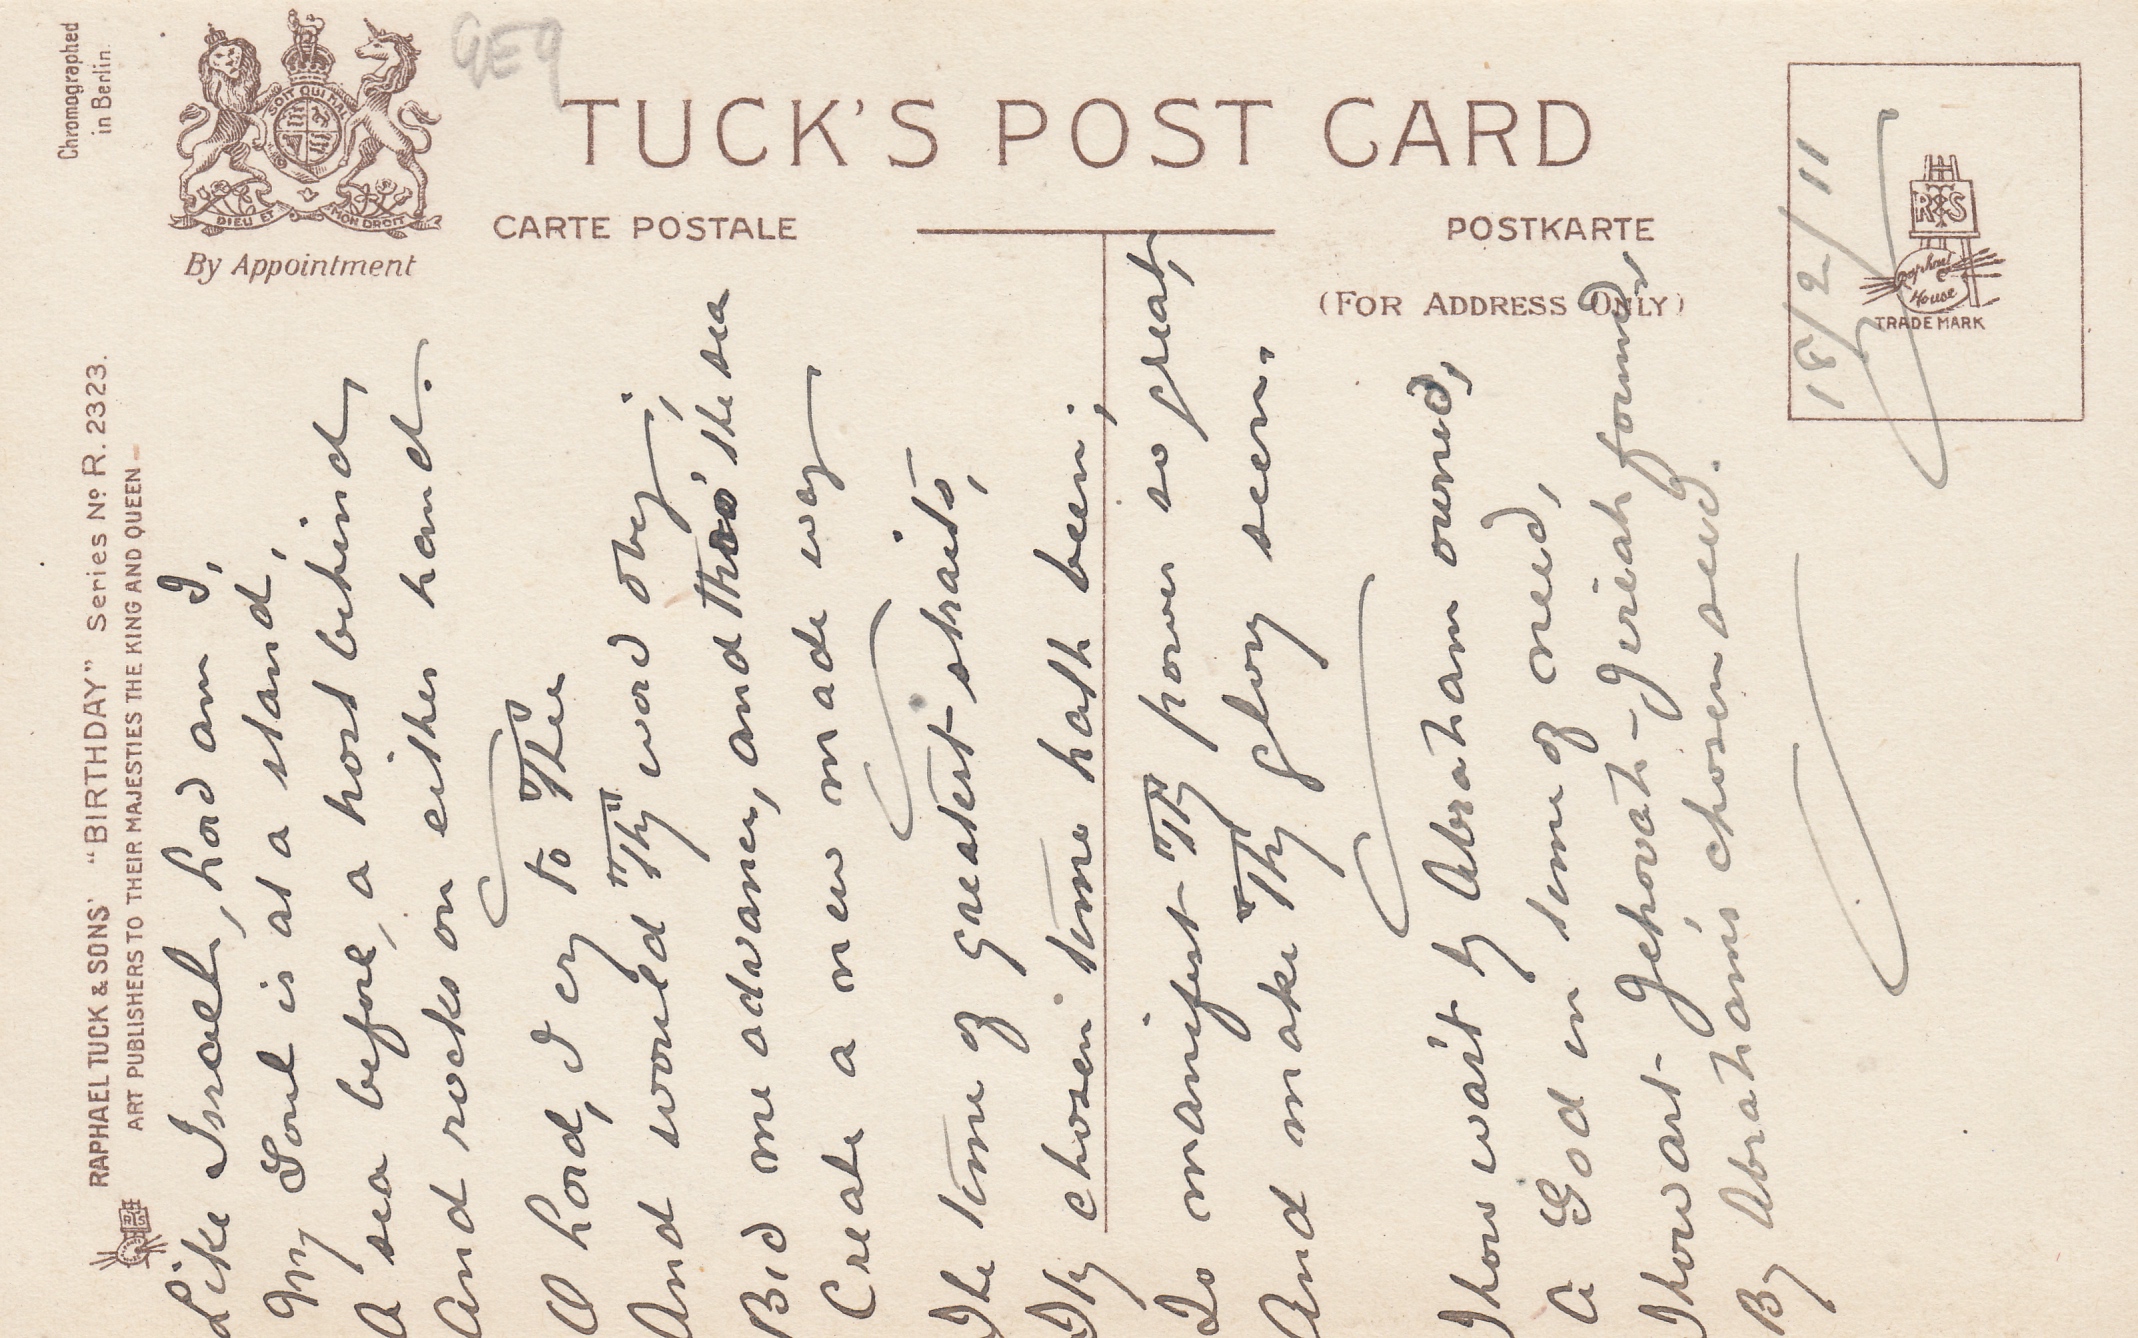 Chromographed
in Berlin.
GE9
SOIT QUI MAL
DIEU ET MON DROIT
By Appointment
TUCK'S POST CARD
CARTE POSTALE
POSTKARTE
(FOR ADDRESS ONLY)
R S
Raphael
House
TRADE MARK
18/2/11
RAPHAEL TUCK & SONS' "BIRTHDAY" Series No R. 2323.
ART PUBLISHERS TO THEIR MAJESTIES THE KING AND QUEEN
Like Israel, Lord am I,
My Soul is at a stand,
A sea before, a host behind
And rocks on either hand.
O Lord, I cry to Thee
And would "Thy" word obey;
Bid me advance, and thro' the sea
Create a new made way
The time of greatest straits,
Thy chosen time hath been;
To manifest "Thy" power so great,
And make "Thy" glory seen.
Thou wast by Abraham owned,
A God in time of need,
Thou art Jehovah-Jireah found,
By Abraham's chosen seed.